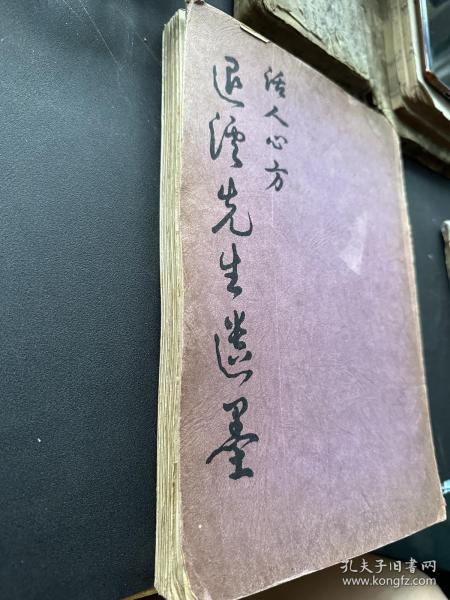 活人心方
退溪先生遺墨
孔夫子旧书网
www.kongfz.com